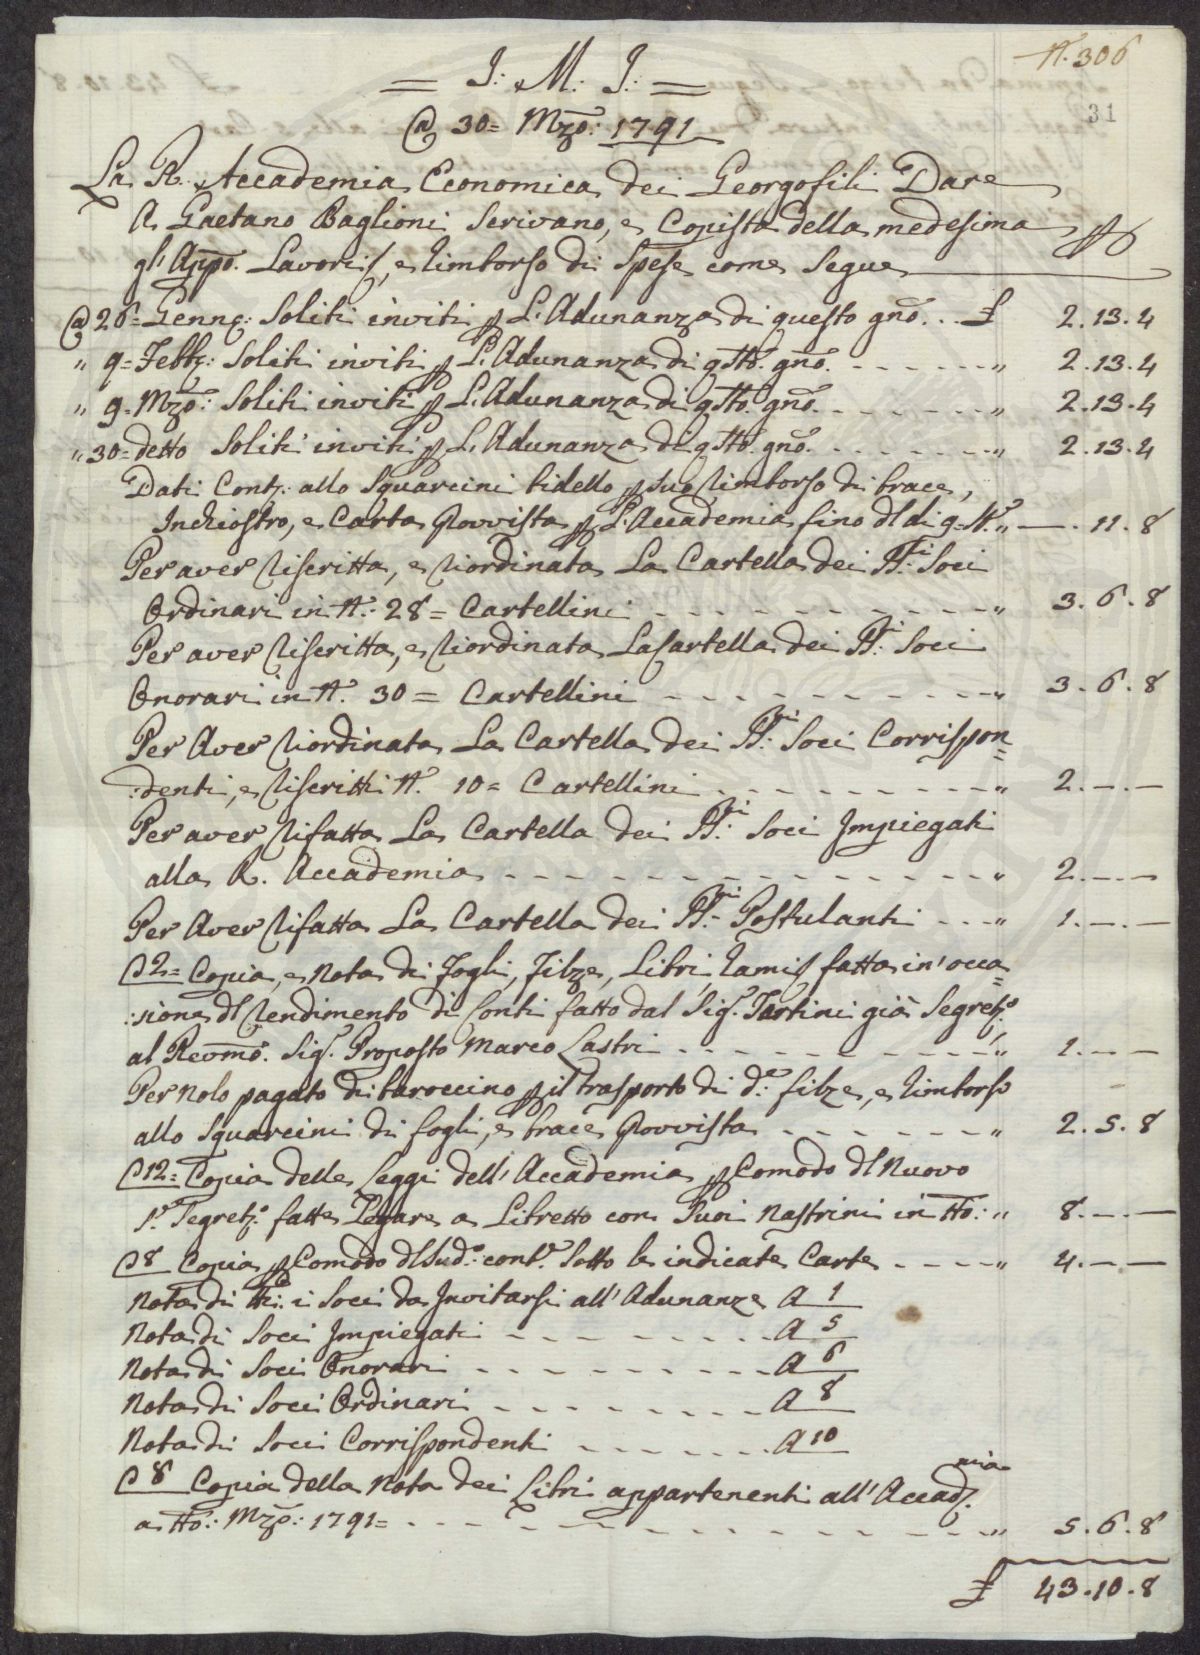 N. 306
31
= J: M: J: =
@ 30= Mzo: 1791
La R. Accademia Economica dei Georgofili Dare
A Gaetano Baglioni Scrivano, e Copista della medesima
gl'Appo. Lavori, e rimborso di Spese come Segue
@ 26= Genno: Soliti inviti p L'Adunanza di questo gno. . . £ 2.13.4
" 9= Febbo: Soliti inviti p L'Adunanza di qsto. gno. " 2.13.4
" 9= Mzo: Soliti inviti p L'Adunanza di qsto. gno. " 2.13.4
" 30= detto Soliti inviti p L'Adunanza di qsto. gno. " 2.13.4
Dati Conti: allo Squarcini bidello p suo rimborso di brace,
Inchiostro, e Carta provvista p L'Accademia fino dl di 9= " —.11.8
Per aver riscritta, e riordinata La Cartella dei SS:ri Soci
Ordinari in N.: 28= Cartellini " 3.6.8
Per aver riscritta, e riordinata La Cartella dei SS:ri Soci
Onorari in N. 30= Cartellini " 3.6.8
Per Aver riordinata La Cartella dei SS:ri Soci Corrispon=
:denti, e riscritti N. 10= Cartellini " 2.—.—
Per aver rifatta La Cartella dei SS:ri Soci Impiegati
alla R. Accademia " 2.—.—
Per Aver rifatta La Cartella dei SS:ri Postulanti " 1.—.—
C 2= Copia, e Nota di Fogli, Filze, Libri, rami fatta in' occa=
:sione dl rendimento di Conti fatto dal Sigr. Tartini già Segreto:
al Revmo. Sigr. Proposto Marco Lastri " 1.—.—
Per nolo pagato di baroccino p il trasporto di de: filze, e rimborso
allo Squarcini di fogli, e brace provvista " 2.5.8
C 12= Copia delle Leggi dell' Accademia p Comodo dl Nuovo
Sr. Segreto: fatte Legare a Libretto con Suoi nastrini in tto: " 8.—.—
C 8 Copia p Comodo dl Sudo: conte. Sotto le indicate Carte " 4.—.—
Nota di tti: i Soci da Invitarsi all' Adunanze A 1
Nota di Soci Impiegati A 5
Nota di Soci Onorari A 6
Nota di Soci Ordinari A 8
Nota di Soci Corrispondenti A 10
C 8 Copia della Nota dei Libri appartenenti all' Accad.mia
a tto: Mzo: 1791= " 5.6.8
£ 43.10.8